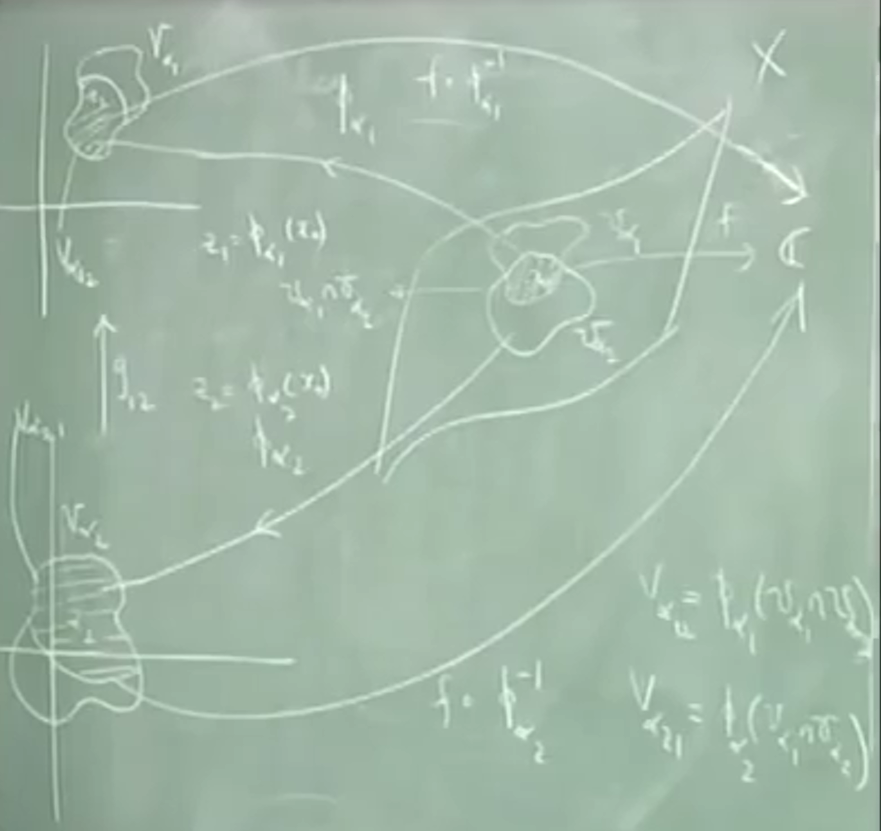 V_{α_1}
X
f ∘ φ_{α_1}^{-1}
φ_{α_1}
z_1 = φ_{α_1}(x_0)
U_{α_1}
f
ℂ
V_{α_{12}}
U_{α_1} ∩ U_{α_2}
U_{α_2}
g_{12}
z_2 = φ_{α_2}(x_0)
φ_{α_2}
V_{α_{21}}
V_{α_2}
z_2
V_{α_{12}} = φ_{α_1}(U_{α_1} ∩ U_{α_2})
f ∘ φ_{α_2}^{-1}
V_{α_{21}} = φ_{α_2}(U_{α_1} ∩ U_{α_2})